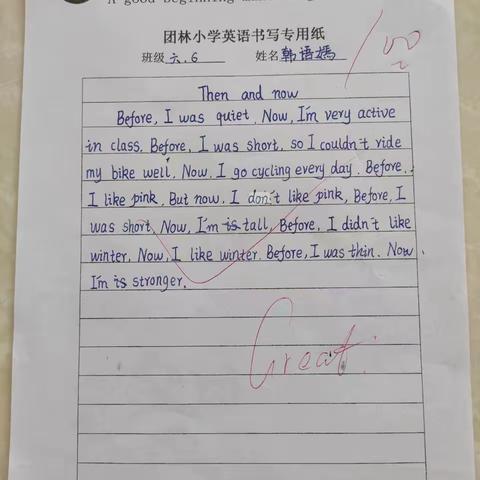 A good beginning
团林小学英语书写专用纸
班级 六.6 姓名 韩语嫣
100
Then and now
Before, I was quiet. Now, I'm very active
in class. Before, I was short, so I couldn't ride
my bike well. Now, I go cycling every day. Before,
I like pink. But now, I don't like pink. Before, I
was short. Now, I'm is tall. Before, I didn't like
winter. Now, I like winter. Before, I was thin. Now
I'm is stronger.
Great.